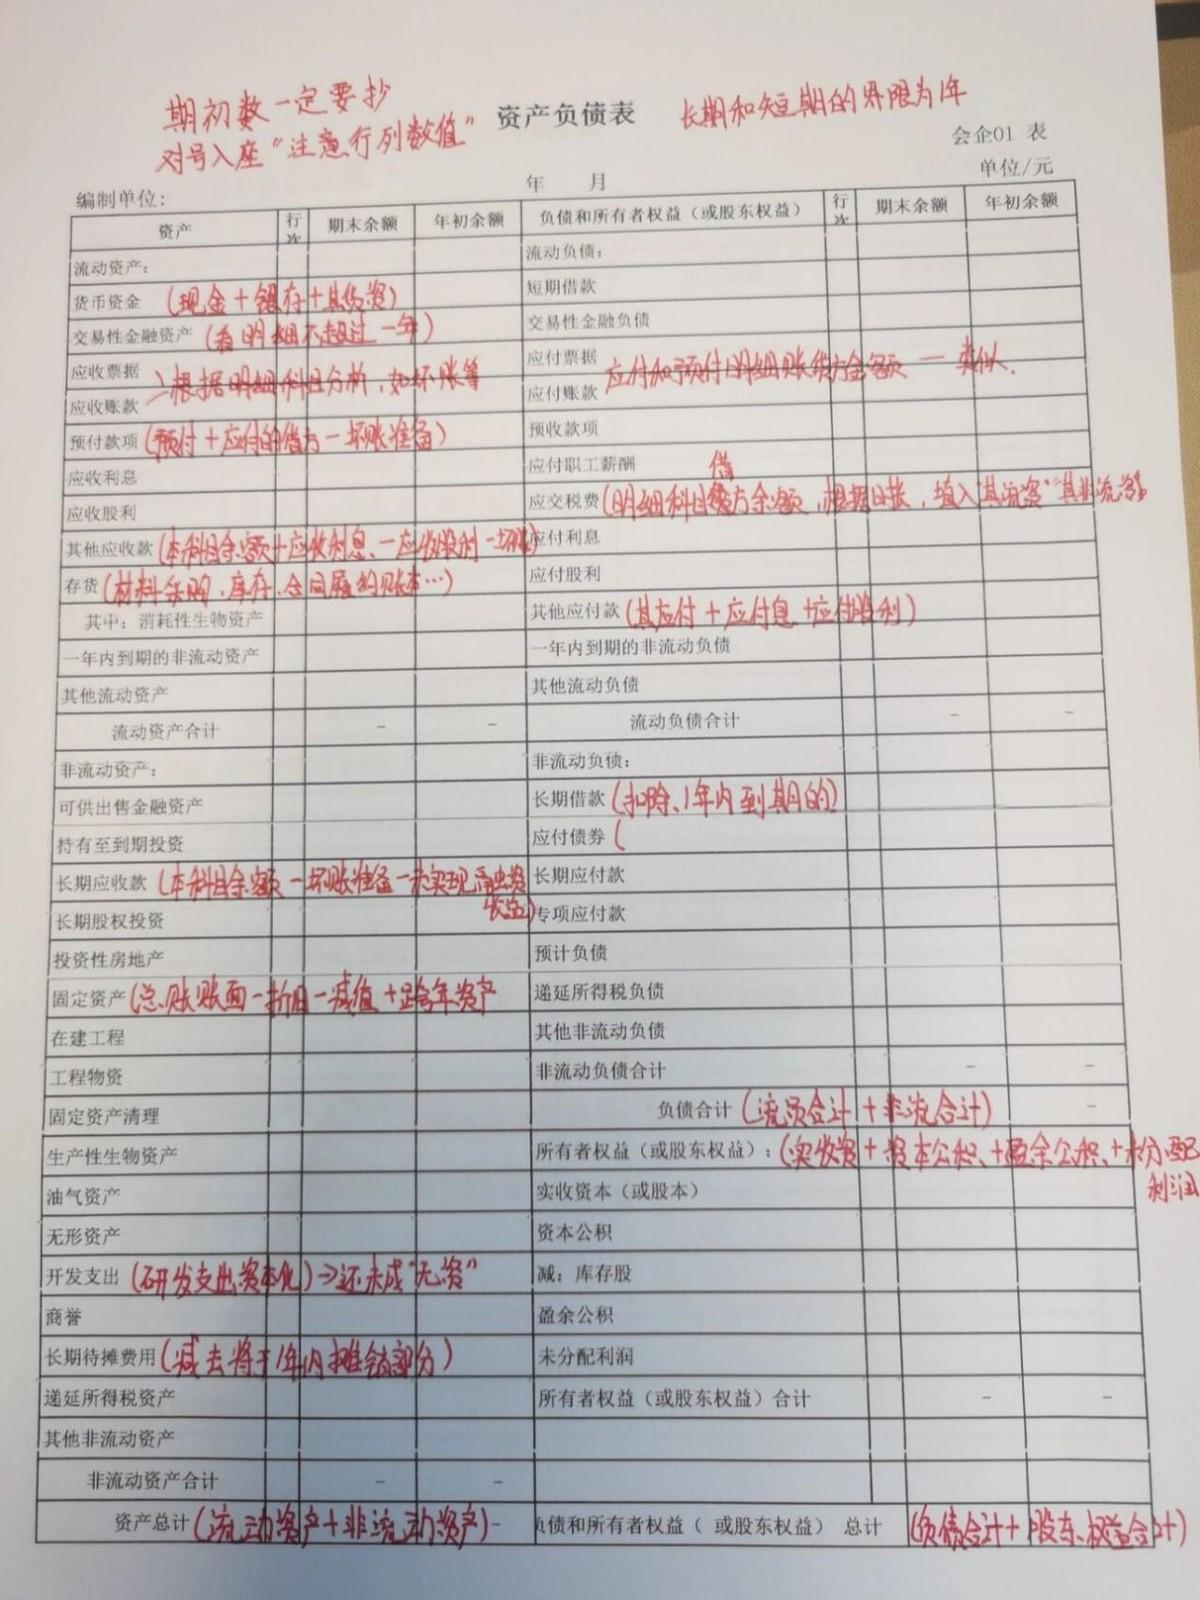 期初数一定要抄
对号入座“注意行列数值”
资产负债表
长期和短期的界限为1年
会企01 表
编制单位:
年 月
单位/元
资产 行次 期末余额 年初余额 负债和所有者权益（或股东权益） 行次 期末余额 年初余额
流动资产: 流动负债:
货币资金 (现金+银存+其货资) 短期借款
交易性金融资产 (看明细不超过一年) 交易性金融负债
应收票据 应付票据
>根据明细科目分析,如坏账等 应付和预付明细账贷方金额 一 类似.
应收账款 应付账款
预付款项 (预付+应付的借方-坏账准备) 预收款项
应收利息 应付职工薪酬
借
应收股利 应交税费 (明细科目方余额,根据日报,填入“其流资”“其非流资”
其他应收款 (本科目余额+应收利息、-应收股利-坏账) 应付利息
存货 (材料采购、库存、合同履约成本…) 应付股利
其中: 消耗性生物资产 其他应付款 (其应付+应付息+应付股利)
一年内到期的非流动资产 一年内到期的非流动负债
其他流动资产 其他流动负债
流动资产合计 - - 流动负债合计 - -
非流动资产: 非流动负债:
可供出售金融资产 长期借款 (扣除、1年内到期的)
持有至到期投资 应付债券 (
长期应收款 (本科目余额-坏账准备-未实现融资收益) 长期应付款
长期股权投资 专项应付款
投资性房地产 预计负债
固定资产 (总账账面-折旧-减值+跨年资产 递延所得税负债
在建工程 其他非流动负债
工程物资 非流动负债合计 - -
固定资产清理 负债合计 (流负合计+非流合计) -
生产性生物资产 所有者权益（或股东权益）: (实收资+资本公积、+盈余公积、+未分配利润
油气资产 实收资本（或股本）
无形资产 资本公积
开发支出 (研发支出资本化)→还未成“无资” 减: 库存股
商誉 盈余公积
长期待摊费用 (减去将于1年内摊销部分) 未分配利润
递延所得税资产 所有者权益（或股东权益）合计 - -
其他非流动资产
非流动资产合计 - -
资产总计 (流动资产+非流动资产) - 负债和所有者权益（ 或股东权益） 总计 (负债合计+股东、权益合计)